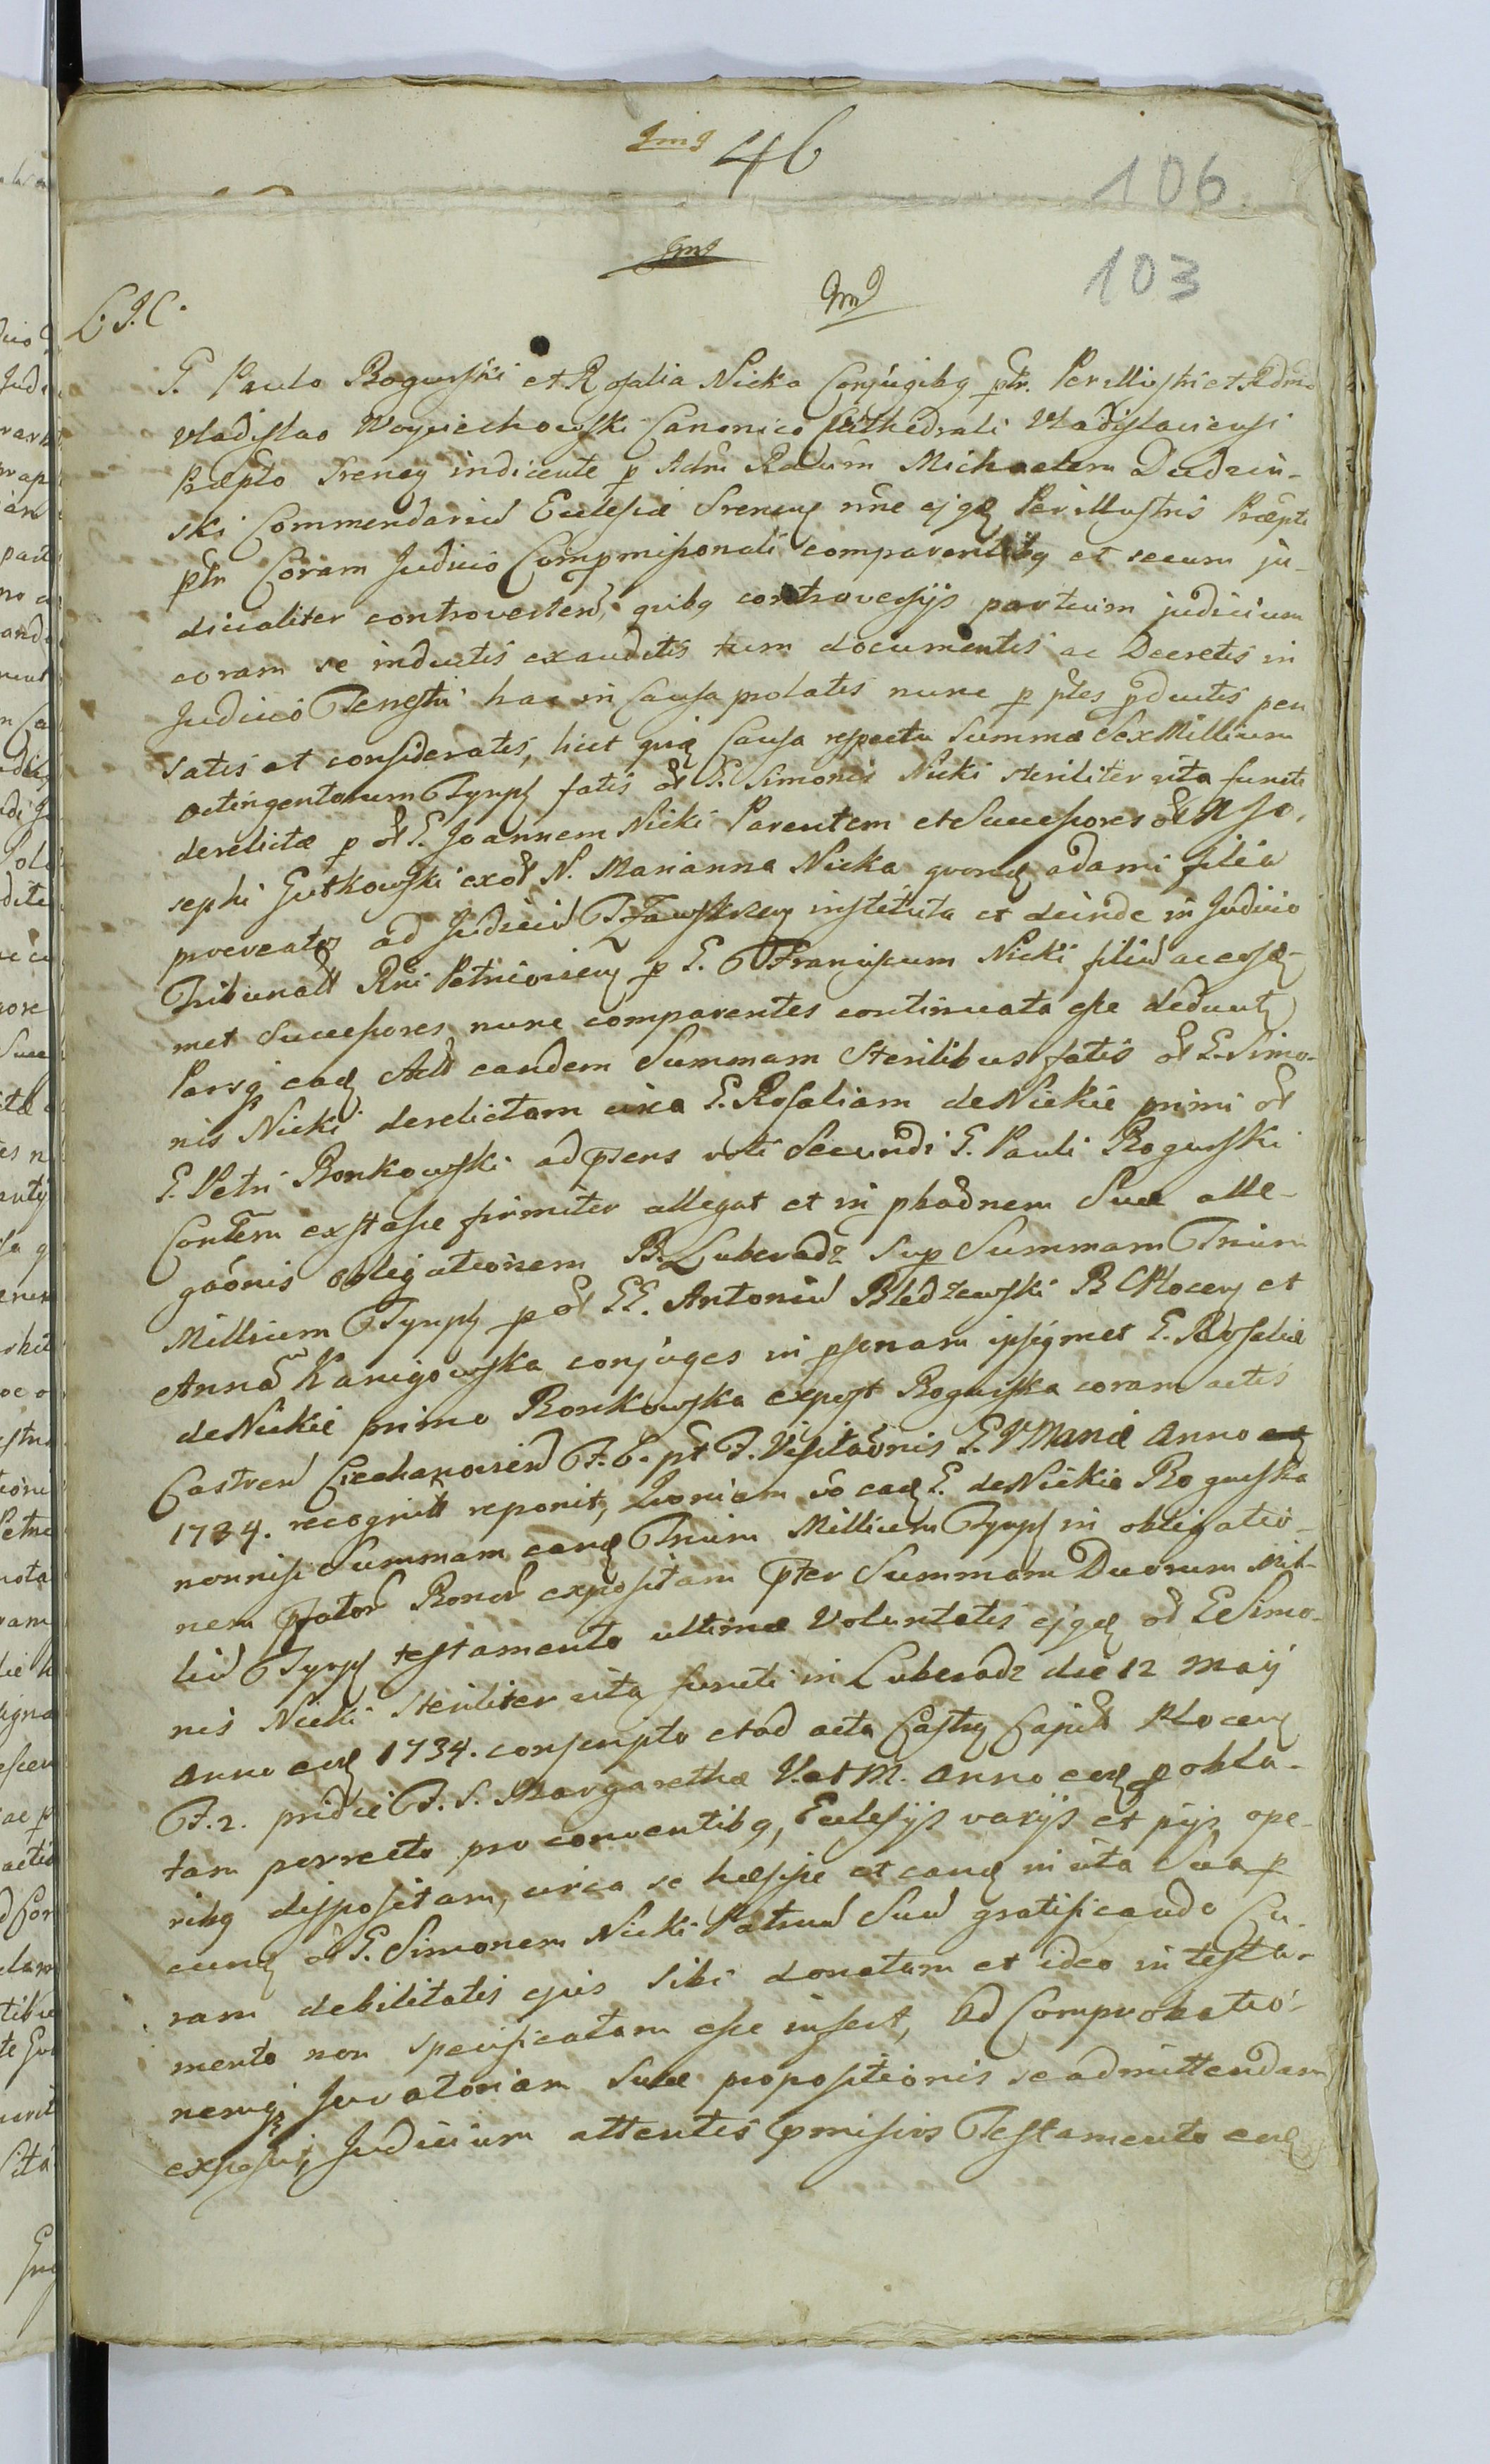 46
106
103
L. J. C.
G. Paulo Bogurski et Rosalia Nicka Conjugibq ptr. Perillustri et Adm
Vladislao Woyciechowski Canonico Cathedrali Vladislaviensi
Præpto Srenen indicente p Adm Rndum Michaelem Dudzin-
ski Commendariu Ecclesiæ Srenen nne ejqd Perillustris Præpti
ptr Coram Judicio Compmissionali comparentibq et secum ju-
dicialiter controverten, quibq controversijs partium judicium
coram se inductis exauditis tum documentis ac Decretis in
Judicio Terrestri hac in Causa prolatis nunc p ptes pductis pen
satis et consideratis, licet quia Causa respectu Summæ Sex Millium
octingentorum Tynph fatis ol G. Simonis Nicki steriliter vita functi
derelictæ p ol G. Joannem Nicki Parentem et Successores ol N Jo,
sephi Gutkowski ex ol N. Marianna Nicka quond adami filia
procreatos ad Judiciu institúta et deinde in Judicio
Tribunall Rni Petricovien p G. Franciscum Nicki filiu ac
met Successores nunc comparentes continuata esse deducit
Parsq ead Act eandem Summam Sterilibus fatis ol G. Simo-
nis Nicki derelictam circa G. Rosaliam de Nickie primi ol
G. Petri Bonkowski ad psens voti Secundi G. Pauli Bogurski
Contem exstase firmiter allegat et in pbaonem Suæ alle-
gaonis obligationem B. Luberadz Sup Summam Trium
Millium Tynph p ol GG. Antoniu Bledzewski B Plocen et
Anna Kanigowska conjuges in psonam ipsiqmet G. Rosaliæ
de Nickie primo Bonkowska expost Bogurska coram actis
Castren Ciechanovien F. 6. pt F. Visitaonis G. V Mariæ Anno
1734. recognit reponit, Quoniam vo ead G. de Nickie Bogurska
nonnisi Summam eand Trium Millium Tynph in obligatio-
nem pfator Bonor expositam pter Summam Duorum Mil-
liu Tynph testamento ultimæ Voluntatis ejqd ol G Simo-
nis Nicki steriliter vita functi in Luberadz die 12 Maij
Anno eod 1734. conscripto et ad acta Castr Capit Plocen
F. 2. pridie F. S. Margarethæ V. et M. Anno eod p obla-
tam porrecto pro conventibq, Ecclesijs varijs et pijs ope-
ribq dispositam, circa se habsse et eand in vita Sua p
eund ol G. Simonem Nicki Patruu Suu gratificando Cu-
ram debilitatis ejus sibi donatam et ideo in testa-
mento non specificatam esse infert, ad Comprobatio-
nemq Juratoriam Suæ propositionis se admittendam
exposcit, Judicium attentis pmissis Testamento eod